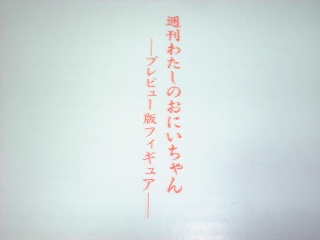 週刊わたしのおにいちゃん
―プレビュー版フィギュア―